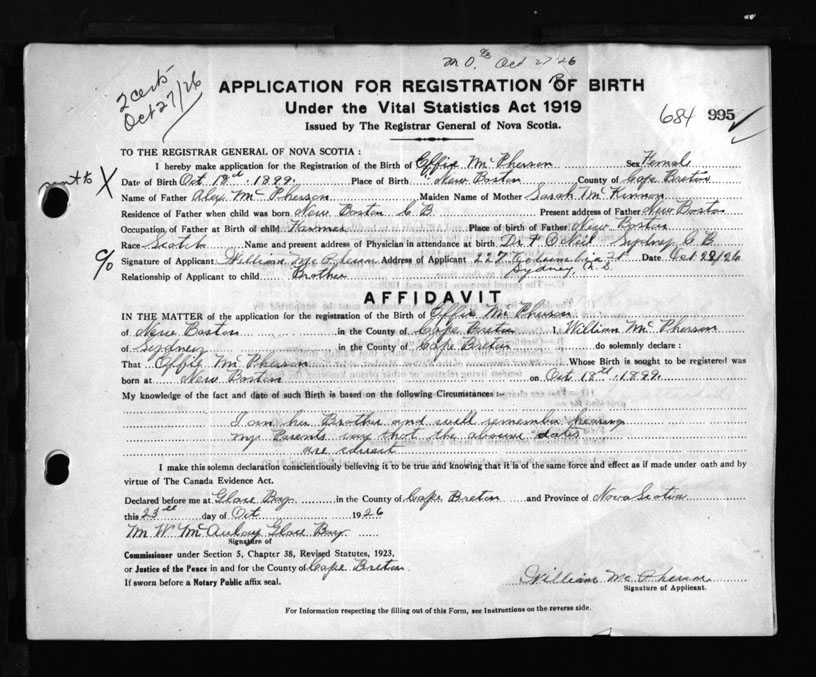 Oct 27 26
2 certs
Oct 27/26
APPLICATION FOR REGISTRATION OF BIRTH
Under the Vital Statistics Act 1919
Issued by The Registrar General of Nova Scotia.
684 995
TO THE REGISTRAR GENERAL OF NOVA SCOTIA :
I hereby make application for the Registration of the Birth of Effie McPherson Sex Female
X Date of Birth Oct 18th 1899 Place of Birth New Boston County of Cape Breton
Name of Father Alex McPherson Maiden Name of Mother Sarah McKinnon
Residence of Father when child was born New Boston C B Present address of Father New Boston
Occupation of Father at Birth of child Farmer Place of birth of Father New Boston
Race Scotch Name and present address of Physician in attendance at birth Dr Sydney C B
% Signature of Applicant William McPherson Address of Applicant 227 Columbia St Date Oct 23/26
Sydney N.S.
Relationship of Applicant to child Brother
AFFIDAVIT
IN THE MATTER of the application for the registration of the Birth of Effie McPherson
of New Boston in the County of Cape Breton I, William McPherson
of Sydney in the County of Cape Breton do solemnly declare :
That Effie McPherson Whose Birth is sought to be registered was
born at New Boston on Oct 18th 1899
My knowledge of the fact and date of such Birth is based on the following Circumstances :-
I am her Brother and well remember hearing
my Parents say that the above dates
are correct
I make this solemn declaration conscientiously believing it to be true and knowing that it is of the same force and effect as if made under oath and by
virtue of The Canada Evidence Act.
Declared before me at Glace Bay in the County of Cape Breton and Province of Nova Scotia
this 23rd day of Oct 1926
M W McAulay Glace Bay
Signature of
Commissioner under Section 5, Chapter 38, Revised Statutes, 1923,
or Justice of the Peace in and for the County of Cape Breton
If sworn before a Notary Public affix seal.
William McPherson
Signature of Applicant.
For Information respecting the filling out of this Form, see Instructions on the reverse side.